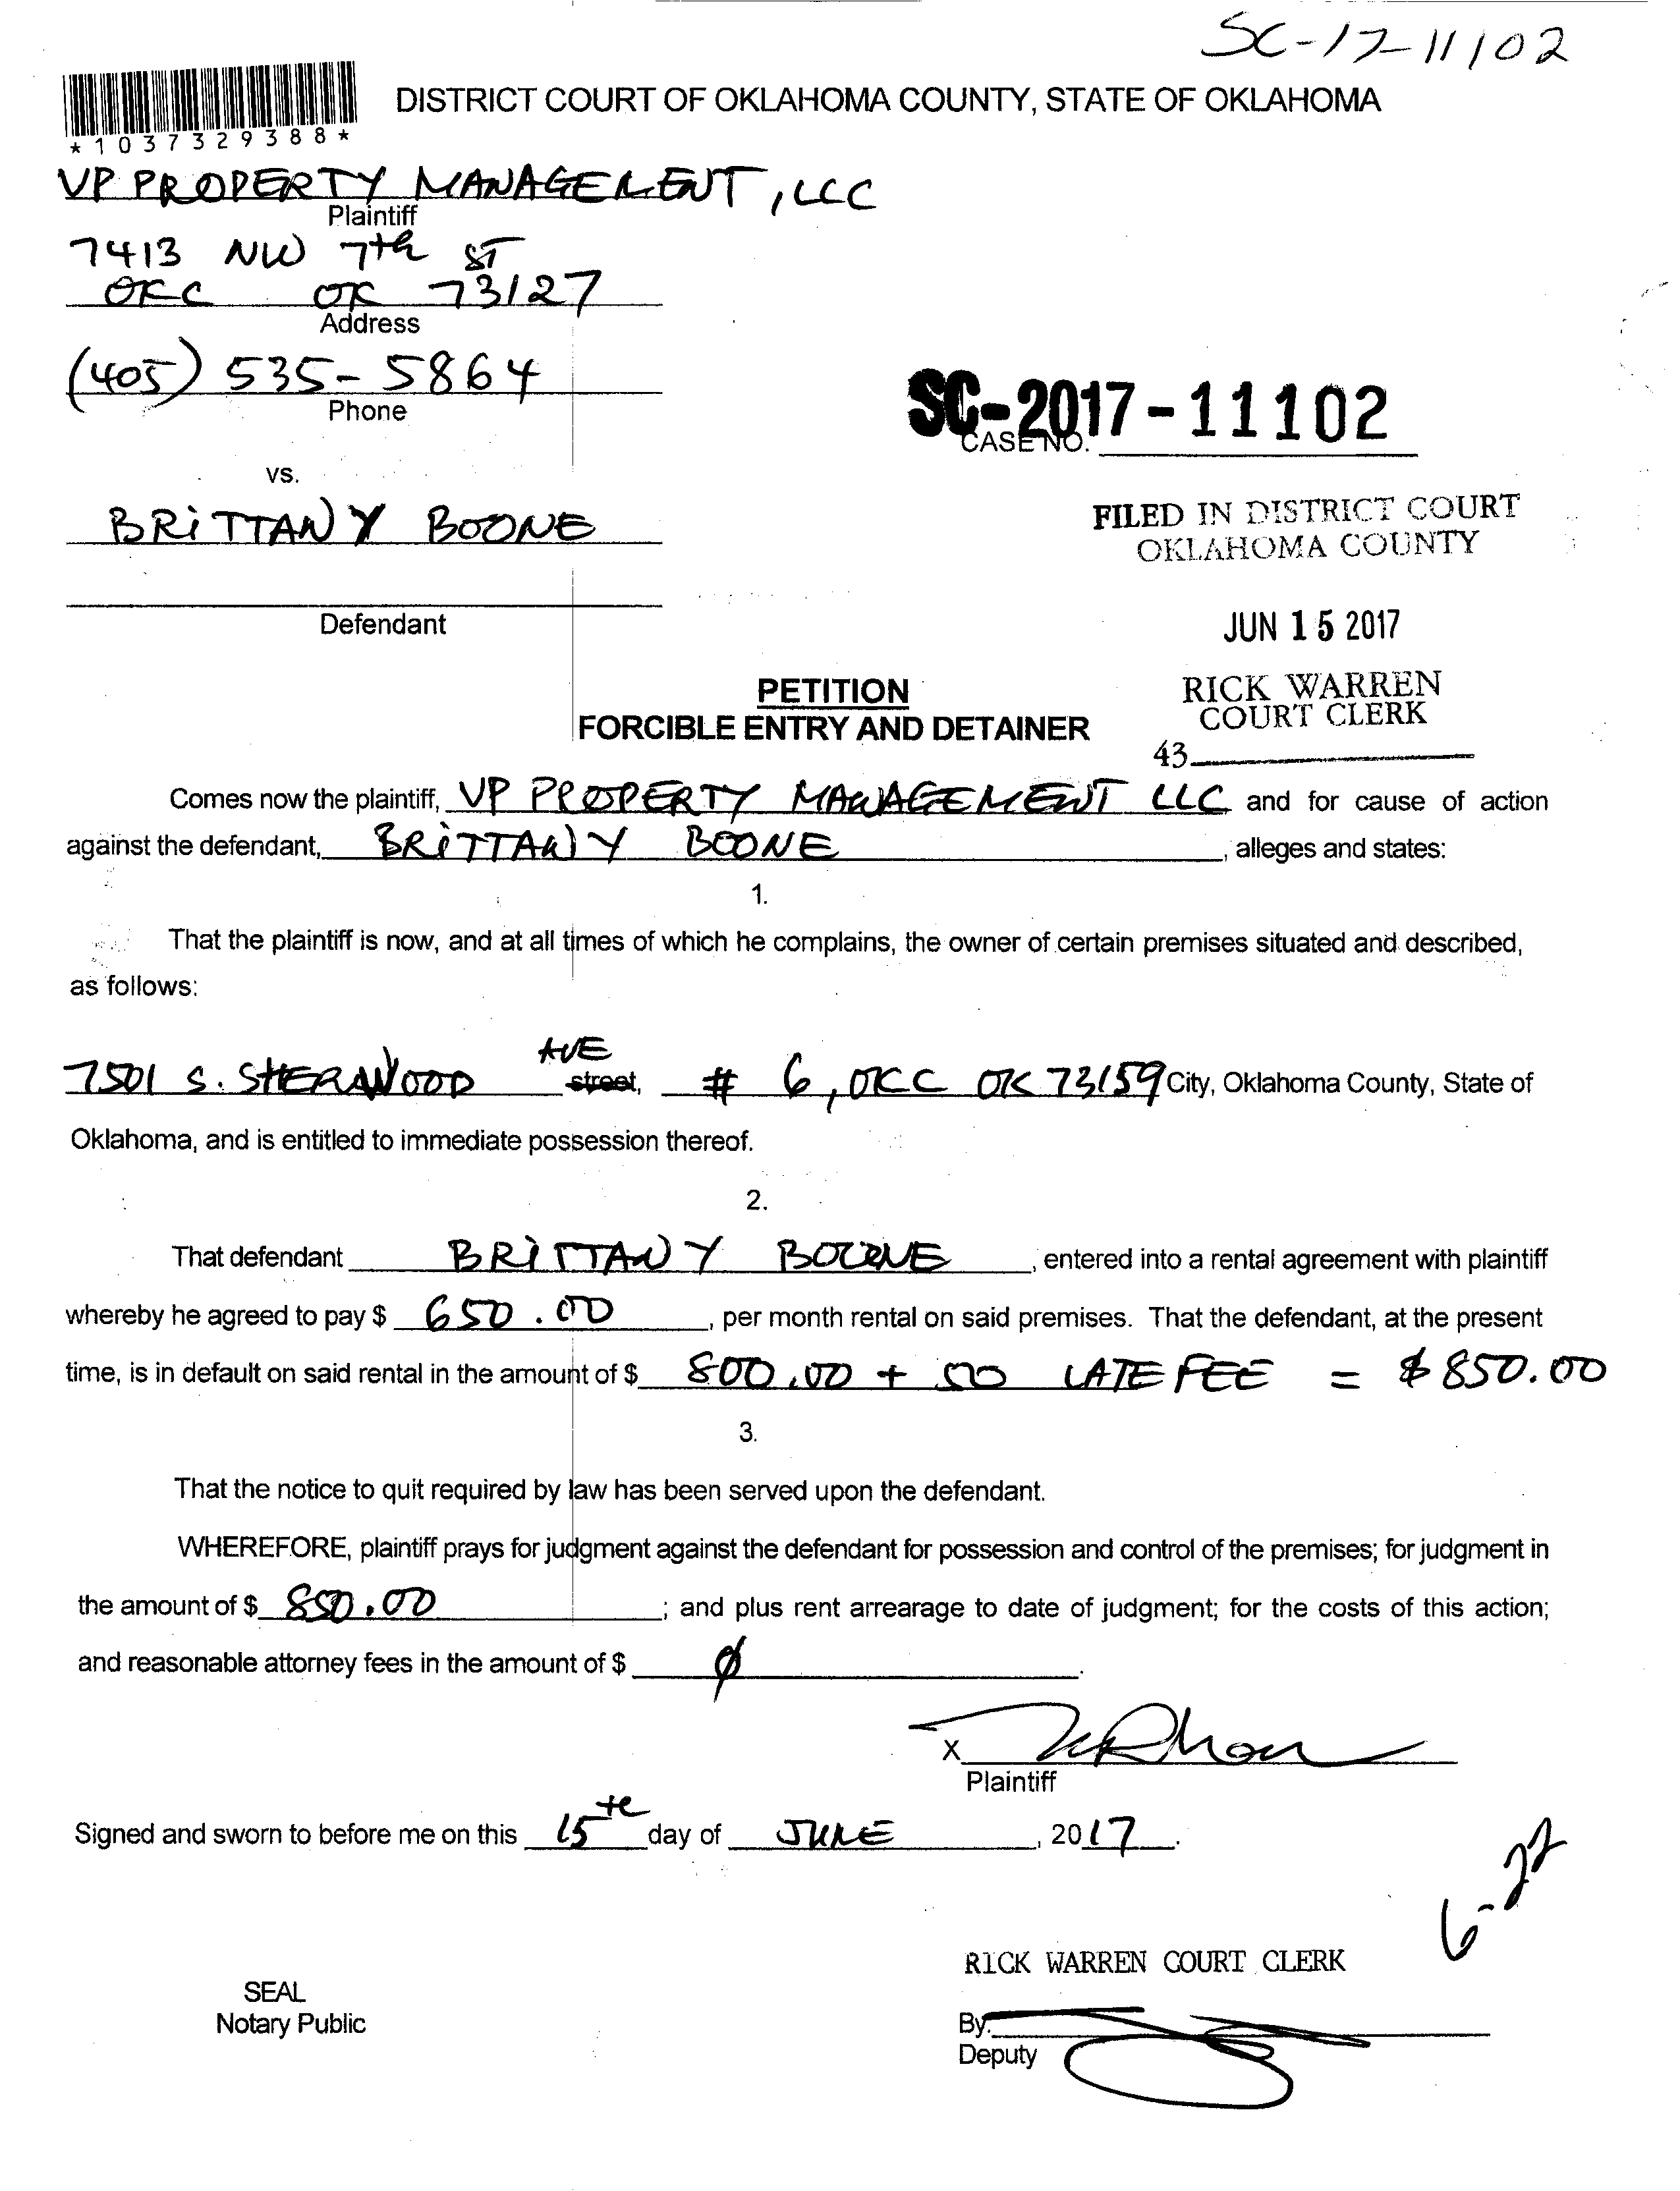 SC-17-11102
DISTRICT COURT OF OKLAHOMA COUNTY, STATE OF OKLAHOMA
*1037329388*
VP PROPERTY MANAGEMENT, LLC
Plaintiff
7413 NW 7th ST
OKC OK 73127
Address
(405) 535-5864
Phone
SC-2017-11102
CASE NO.
vs.
BRITTANY BOONE
FILED IN DISTRICT COURT
OKLAHOMA COUNTY
Defendant
JUN 15 2017
PETITION
RICK WARREN
COURT CLERK
FORCIBLE ENTRY AND DETAINER
43
Comes now the plaintiff, VP PROPERTY MANAGEMENT LLC and for cause of action
against the defendant, BRITTANY BOONE, alleges and states:
1.
That the plaintiff is now, and at all times of which he complains, the owner of certain premises situated and described,
as follows:
7501 S. SHERWOOD AVE street, # 6, OKC OK 73159 City, Oklahoma County, State of
Oklahoma, and is entitled to immediate possession thereof.
2.
That defendant BRITTANY BOONE, entered into a rental agreement with plaintiff
whereby he agreed to pay $ 650.00, per month rental on said premises. That the defendant, at the present
time, is in default on said rental in the amount of $ 800.00 + 50 LATE FEE = $850.00
3.
That the notice to quit required by law has been served upon the defendant.
WHEREFORE, plaintiff prays for judgment against the defendant for possession and control of the premises; for judgment in
the amount of $ 850.00; and plus rent arrearage to date of judgment; for the costs of this action;
and reasonable attorney fees in the amount of $ ∅.
X
Plaintiff
Signed and sworn to before me on this 15th day of JUNE, 2017.
6-22
RICK WARREN COURT CLERK
SEAL
Notary Public
By:
Deputy